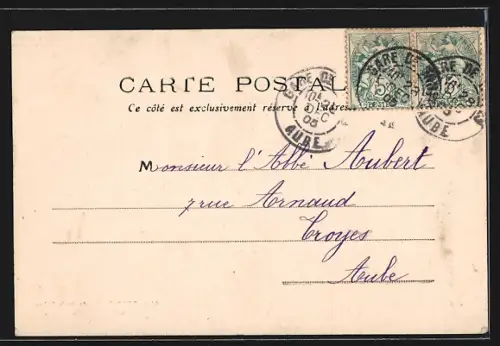 CARTE POSTALE
Ce côté est exclusivement réservé à l'adresse
GARE DE
DEC
05
AUBE
GARE DE
AUBE
Monsieur l'Abbé Aubert
7 rue Arnaud
Troyes
Aube